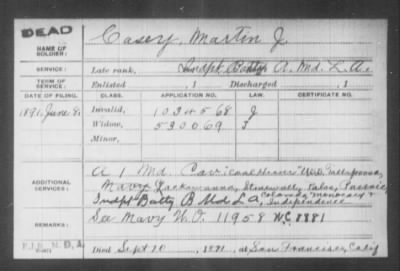 DEAD
NAME OF SOLDIER: Casey, Martin J.
SERVICE: Late rank, Indpt Batty A. Md. L. A.
TERM OF SERVICE: Enlisted , 1 Discharged , 1
DATE OF FILING. CLASS. APPLICATION NO. LAW. CERTIFICATE NO.
1891 June 8. Invalid, 1034568 J
Widow, 530069 J
Minor,
A 1 Md. Cav
ADDITIONAL SERVICES: Navy Lackawanna, Pensacola
Indpt Batty B Md L A, Independence
REMARKS: See Navy W.O. 11958 W.C. 8881
Died Sept 10 , San Francisco, Calif